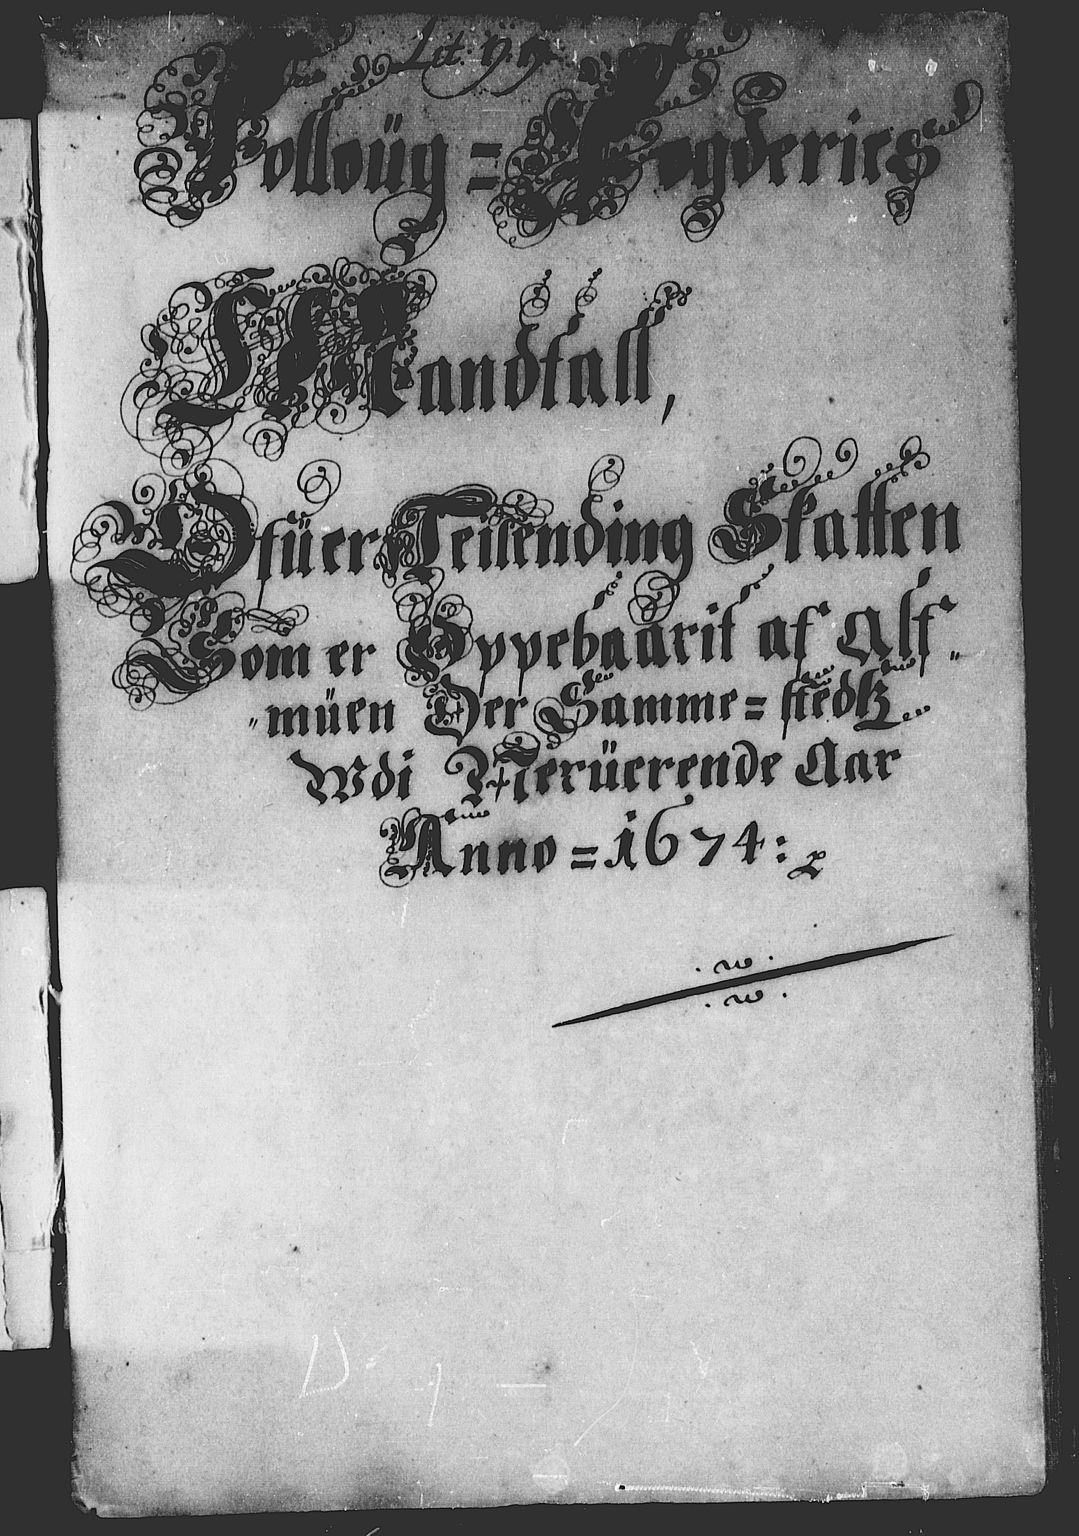 Lit: N. N.
Folloüg = Fogderies
Mandtall,
Ofüer Teisending Skatten
Som er Oppebaarit af Alf"
"müen Der Samme = stedtz
Wdi Nerüerende Aar
Anno = 1674: